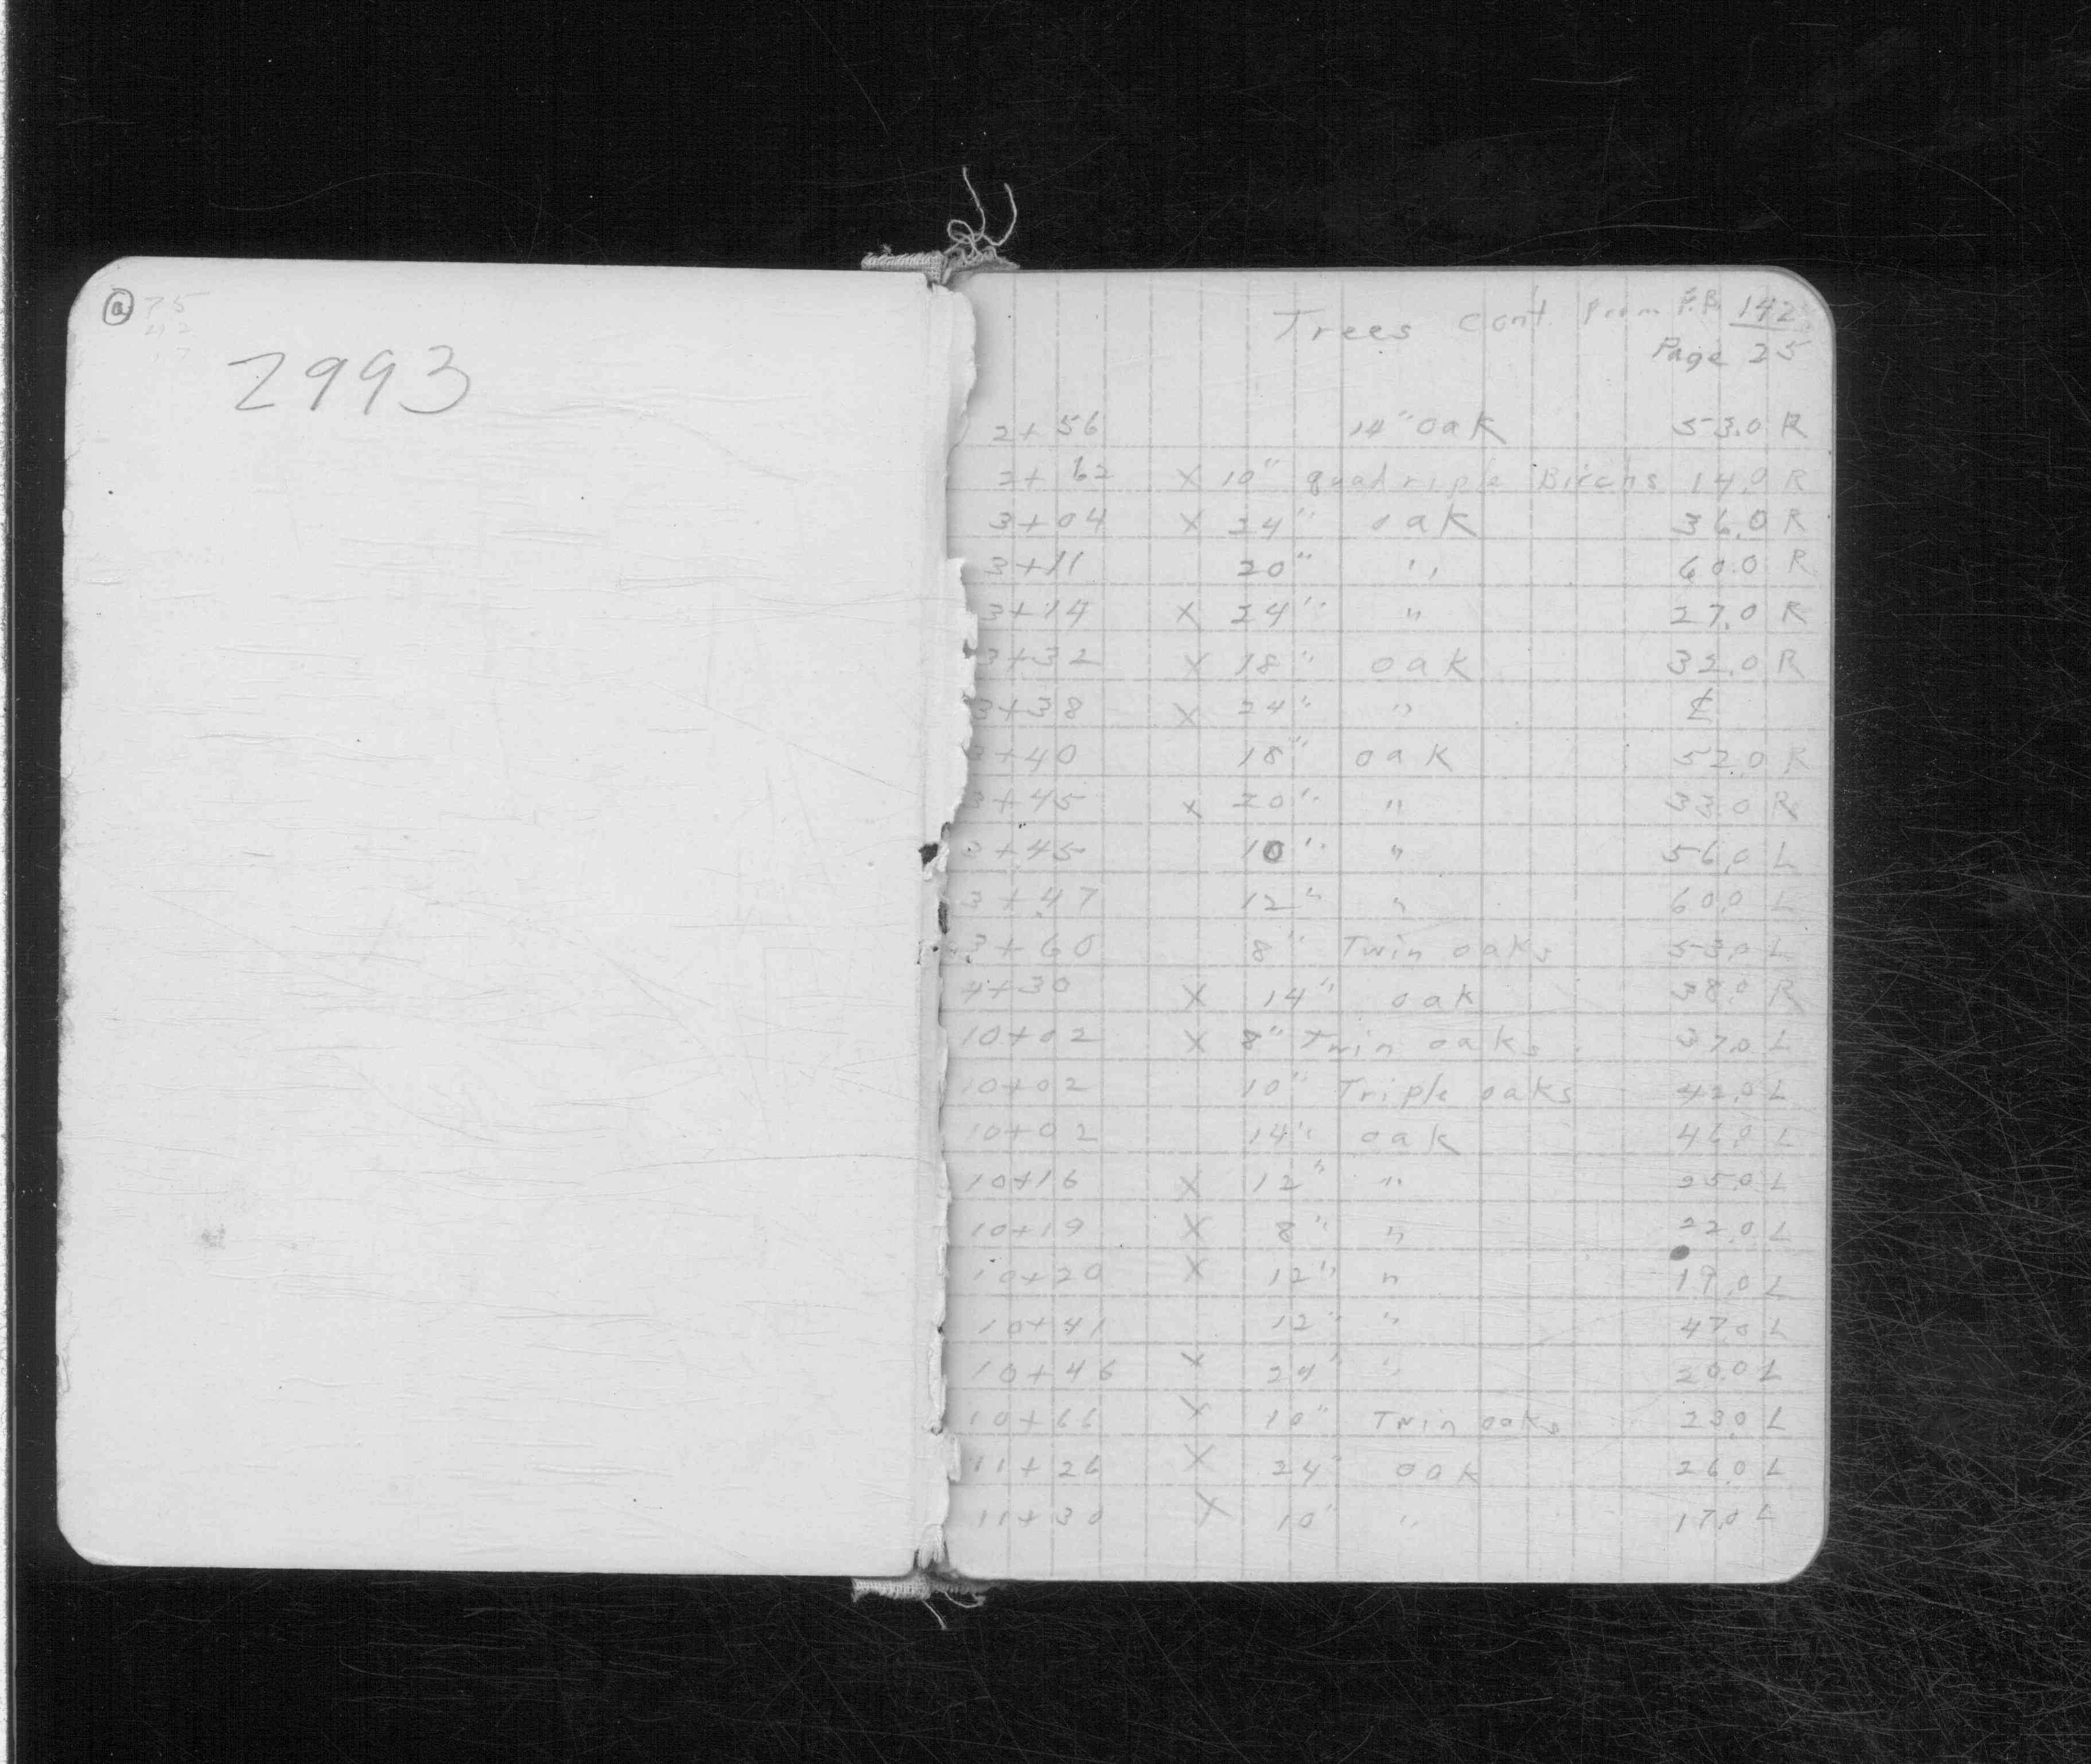 a 75
42
17
2993
Trees cont from F.B. 142
Page 25
2+56 14" oak 53.0 R
2+62 X 10" quadriple Birchs 14.0 R
3+04 X 24" oak 36.0 R
3+11 20" " 60.0 R
3+14 X 24" " 27.0 R
3+32 X 18" oak 32.0 R
3+38 X 24" " ℄
3+40 18" oak 52.0 R
3+45 X 20" " 33.0 R
3+45 10" " 56.0 L
3+47 12" " 60.0 L
3+60 8" Twin oaks 53.0 L
4+30 X 14" oak 38.0 R
10+02 X 8" Twin oaks 37.0 L
10+02 10" Triple oaks 42.0 L
10+02 14" oak 46.0 L
10+16 X 12" " 25.0 L
10+19 X 8" " 22.0 L
10+20 X 12" " 19.0 L
10+41 12" " 47.0 L
10+46 X 24" " 20.0 L
10+66 X 10" Twin oaks 23.0 L
11+26 X 24" oak 26.0 L
11+30 X 10" " 17.0 L